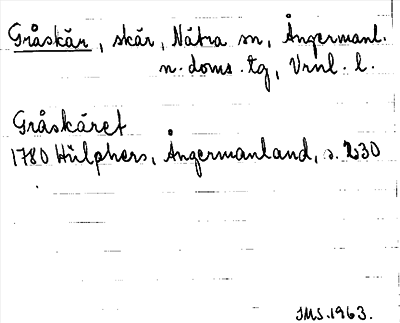 Gråskär, skär, Nätra sn, Ångermanl.
n. doms. tg, Vrnl. l.
Gråskäret
1780 Hülphers, Ångermanland, s. 230
IMS.1963.